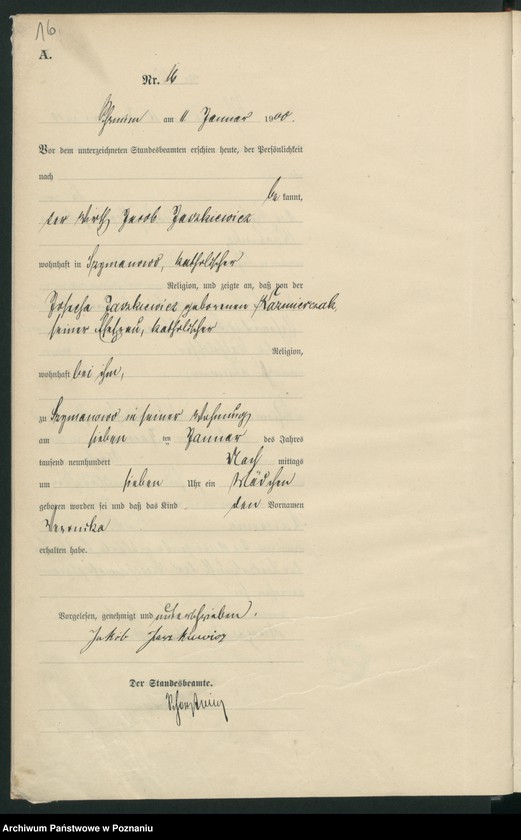 16.
A.
Nr. 16
Schrimm am 11 Januar 1900.
Vor dem unterzeichneten Standesbeamten erschien heute, der Persönlichkeit
nach
be kannt,
der Wirth Jacob Jaszkiewicz
wohnhaft in Szymanowo, katholischer
Religion, und zeigte an, daß von der
Josepha Jaszkiewicz geborenen Kaźmierczak,
seiner Ehefrau, katholischer
Religion,
wohnhaft bei ihm,
zu Szymanowo in seiner Wohnung
am sieben ten Januar des Jahres
tausend neunhundert Nach mittags
um sieben Uhr ein Mädchen
geboren worden sei und daß das Kind den Vornamen
Veronika
erhalten habe.
Vorgelesen, genehmigt und unterschrieben.
Jakób
Der Standesbeamte.
Archiwum Państwowe w Poznaniu